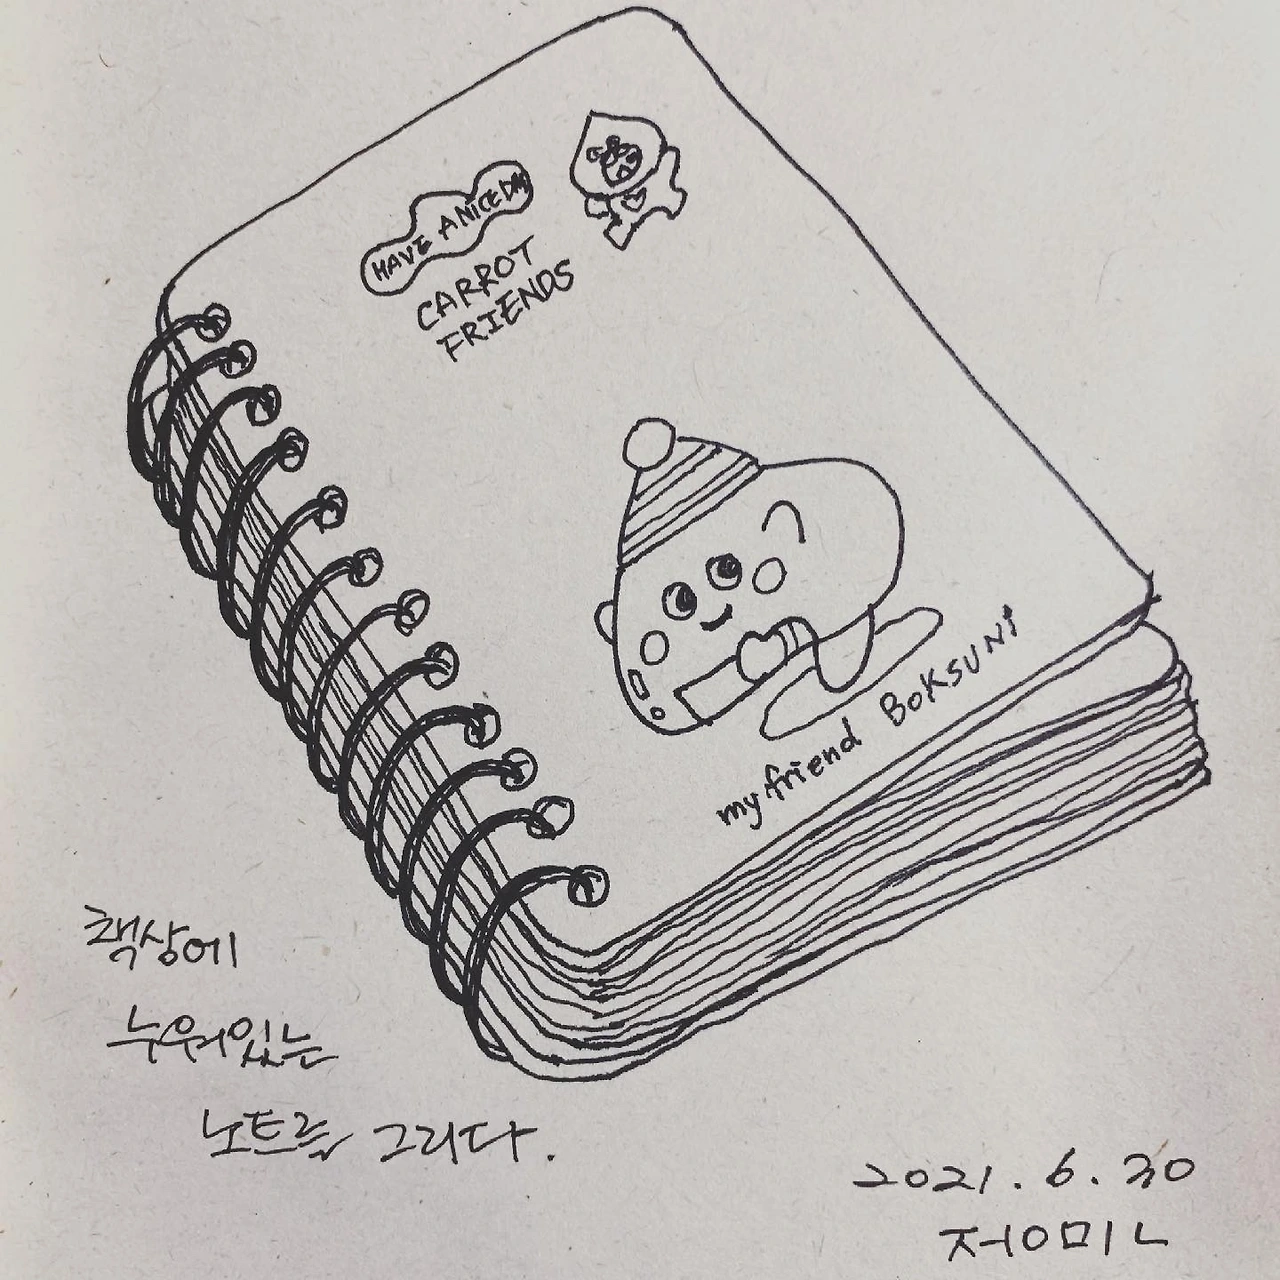 HAVE A NICE DAY
CARROT
FRIENDS
my friend BOKSUNI
책상에
누워있는
노트를 그리다.
2021.6.30
정미ㄴ